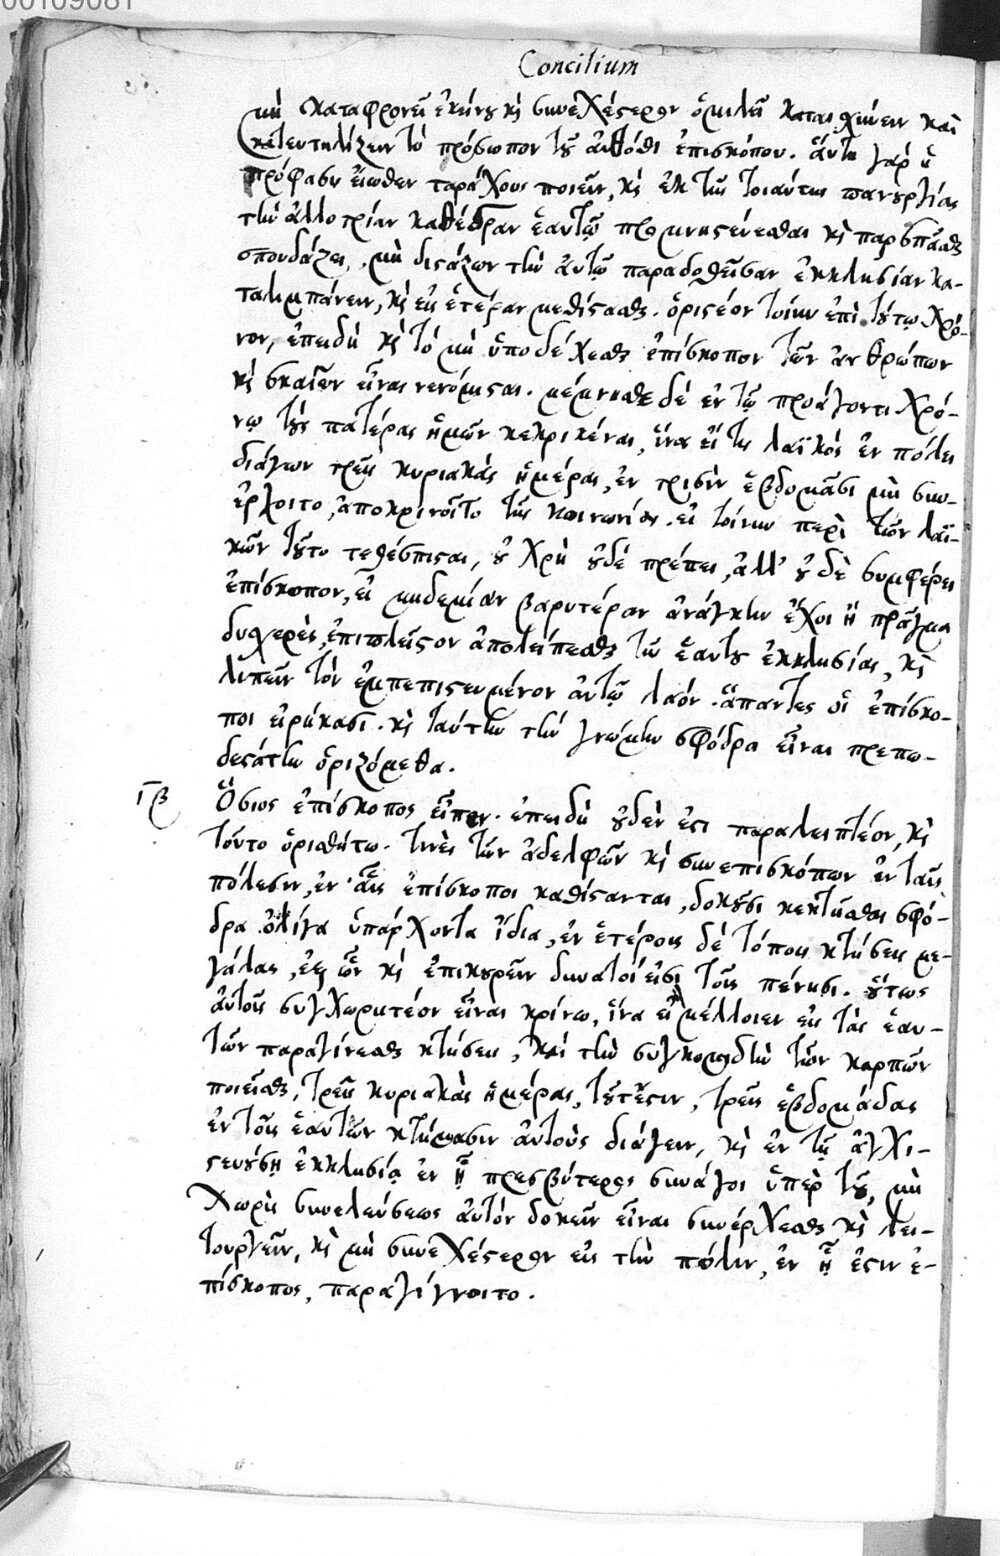 00109081
Concilium
μὴ καταφρονεῖ ἐκείνου κỳ συνεχέστερον ὁμιλεῖ καταισχύνειν καὶ
κατευτηλίζειν τὸ πρόσωπον τοῦ αὐτόθι ἐπισκόπου. αὕτη γὰρ ἡ
πρόφασιν εἴωθεν ταράχους ποιεῖν, κỳ ἐκ τῆς τοιαύτης πανουργίας
τὴν ἀλλοτρίαν καθέδραν ἑαυτῷ προμνηστεύεσθαι κỳ παρασπᾶσθαι
σπουδάζει, μὴ διστάζων τὴν αὐτῷ παραδοθεῖσαν ἐκκλησίαν κα-
ταλιμπάνειν, κỳ εἰς ἑτέραν μεθίστασθαι. ὁριστέον τοίνυν ἐπὶ τούτῳ χρό-
νον, ἐπειδὴ κỳ τὸ μὴ ὑποδέχεσθαι ἐπίσκοπον τῶν ἀνθρώπων
κỳ σκαιῶν εἶναι νενόμισται. μέμνησθε δὲ ἐν τῷ προάγοντι χρό-
νῳ τοὺς πατέρας ἡμῶν κεκρικέναι, ἵνα εἴ τις λαϊκὸς ἐν πόλει
διάγων τρεῖς κυριακὰς ἡμέρας, ἐν τρισὶν ἑβδομᾶσι μὴ συν-
έρχοιτο, ἀποκρινοῖτο τῆς κοινωνίας. εἰ τοίνυν περὶ τῶν λαϊ-
κῶν τοῦτο τεθέσπισται, οὐ χρὴ οὐδὲ πρέπει, ἀλλ' οὐδὲ συμφέρει
ἐπίσκοπον, εἰ μηδεμίαν βαρυτέραν ἀνάγκην ἔχοι ἢ πρᾶγμα
δυσχερὲς, ἐπιπλεῖστον ἀπολείπεσθαι τῆς ἑαυτοῦ ἐκκλησίας, κỳ
λιπεῖν τὸν ἐμπεπιστευμένον αὐτῷ λαόν. ἅπαντες οἱ ἐπίσκο-
ποι εἰρήκασι. κỳ ταύτην τὴν γνώμην σφόδρα εἶναι πρεπω-
δεστάτην ὁριζόμεθα.
ιβ Ὅσιος ἐπίσκοπος εἶπεν. ἐπειδὴ οὐδέν ἐστι παραλειπτέον, κỳ
τοῦτο ὁρισθήτω. τινὲς τῶν ἀδελφῶν κỳ συνεπισκόπων ἐν ταῖς
πόλεσιν, ἐν αἷς ἐπίσκοποι καθίστανται, δοκοῦσι κεκτῆσθαι σφό-
δρα ὀλίγα ὑπάρχοντα ἴδια, ἐν ἑτέροις δὲ τόποις κτήσεις με-
γάλας, ἐξ ὧν κỳ ἐπικουρεῖν δυνατοί εἰσι τοῖς πένησι. οὕτως
αὐτοῖς συγχωρητέον εἶναι κρίνω, ἵνα εἰ μέλλοιεν εἰς τὰς ἑαυ-
τῶν παραγίνεσθαι κτήσεις, καὶ τὴν συγκομιδὴν τῶν καρπῶν
ποιεῖσθαι, τρεῖς κυριακὰς ἡμέρας, τουτέστιν, τρεῖς ἑβδομάδας
ἐν τοῖς ἑαυτῶν κτήμασιν αὐτοὺς διάγειν, κỳ ἐν τῇ ἀγχι-
στευούσῃ ἐκκλησίᾳ ἐν ᾗ πρεσβύτερος συνάγοι ὑπὲρ τοῦ, μὴ
χωρὶς συνελεύσεως αὐτὸν δοκεῖν εἶναι συνέρχεσθαι κỳ λει-
τουργεῖν, κỳ μὴ συνεχέστερον εἰς τὴν πόλιν, ἐν ᾗ ἐστιν ἐ-
πίσκοπος, παραγίγνοιτο.